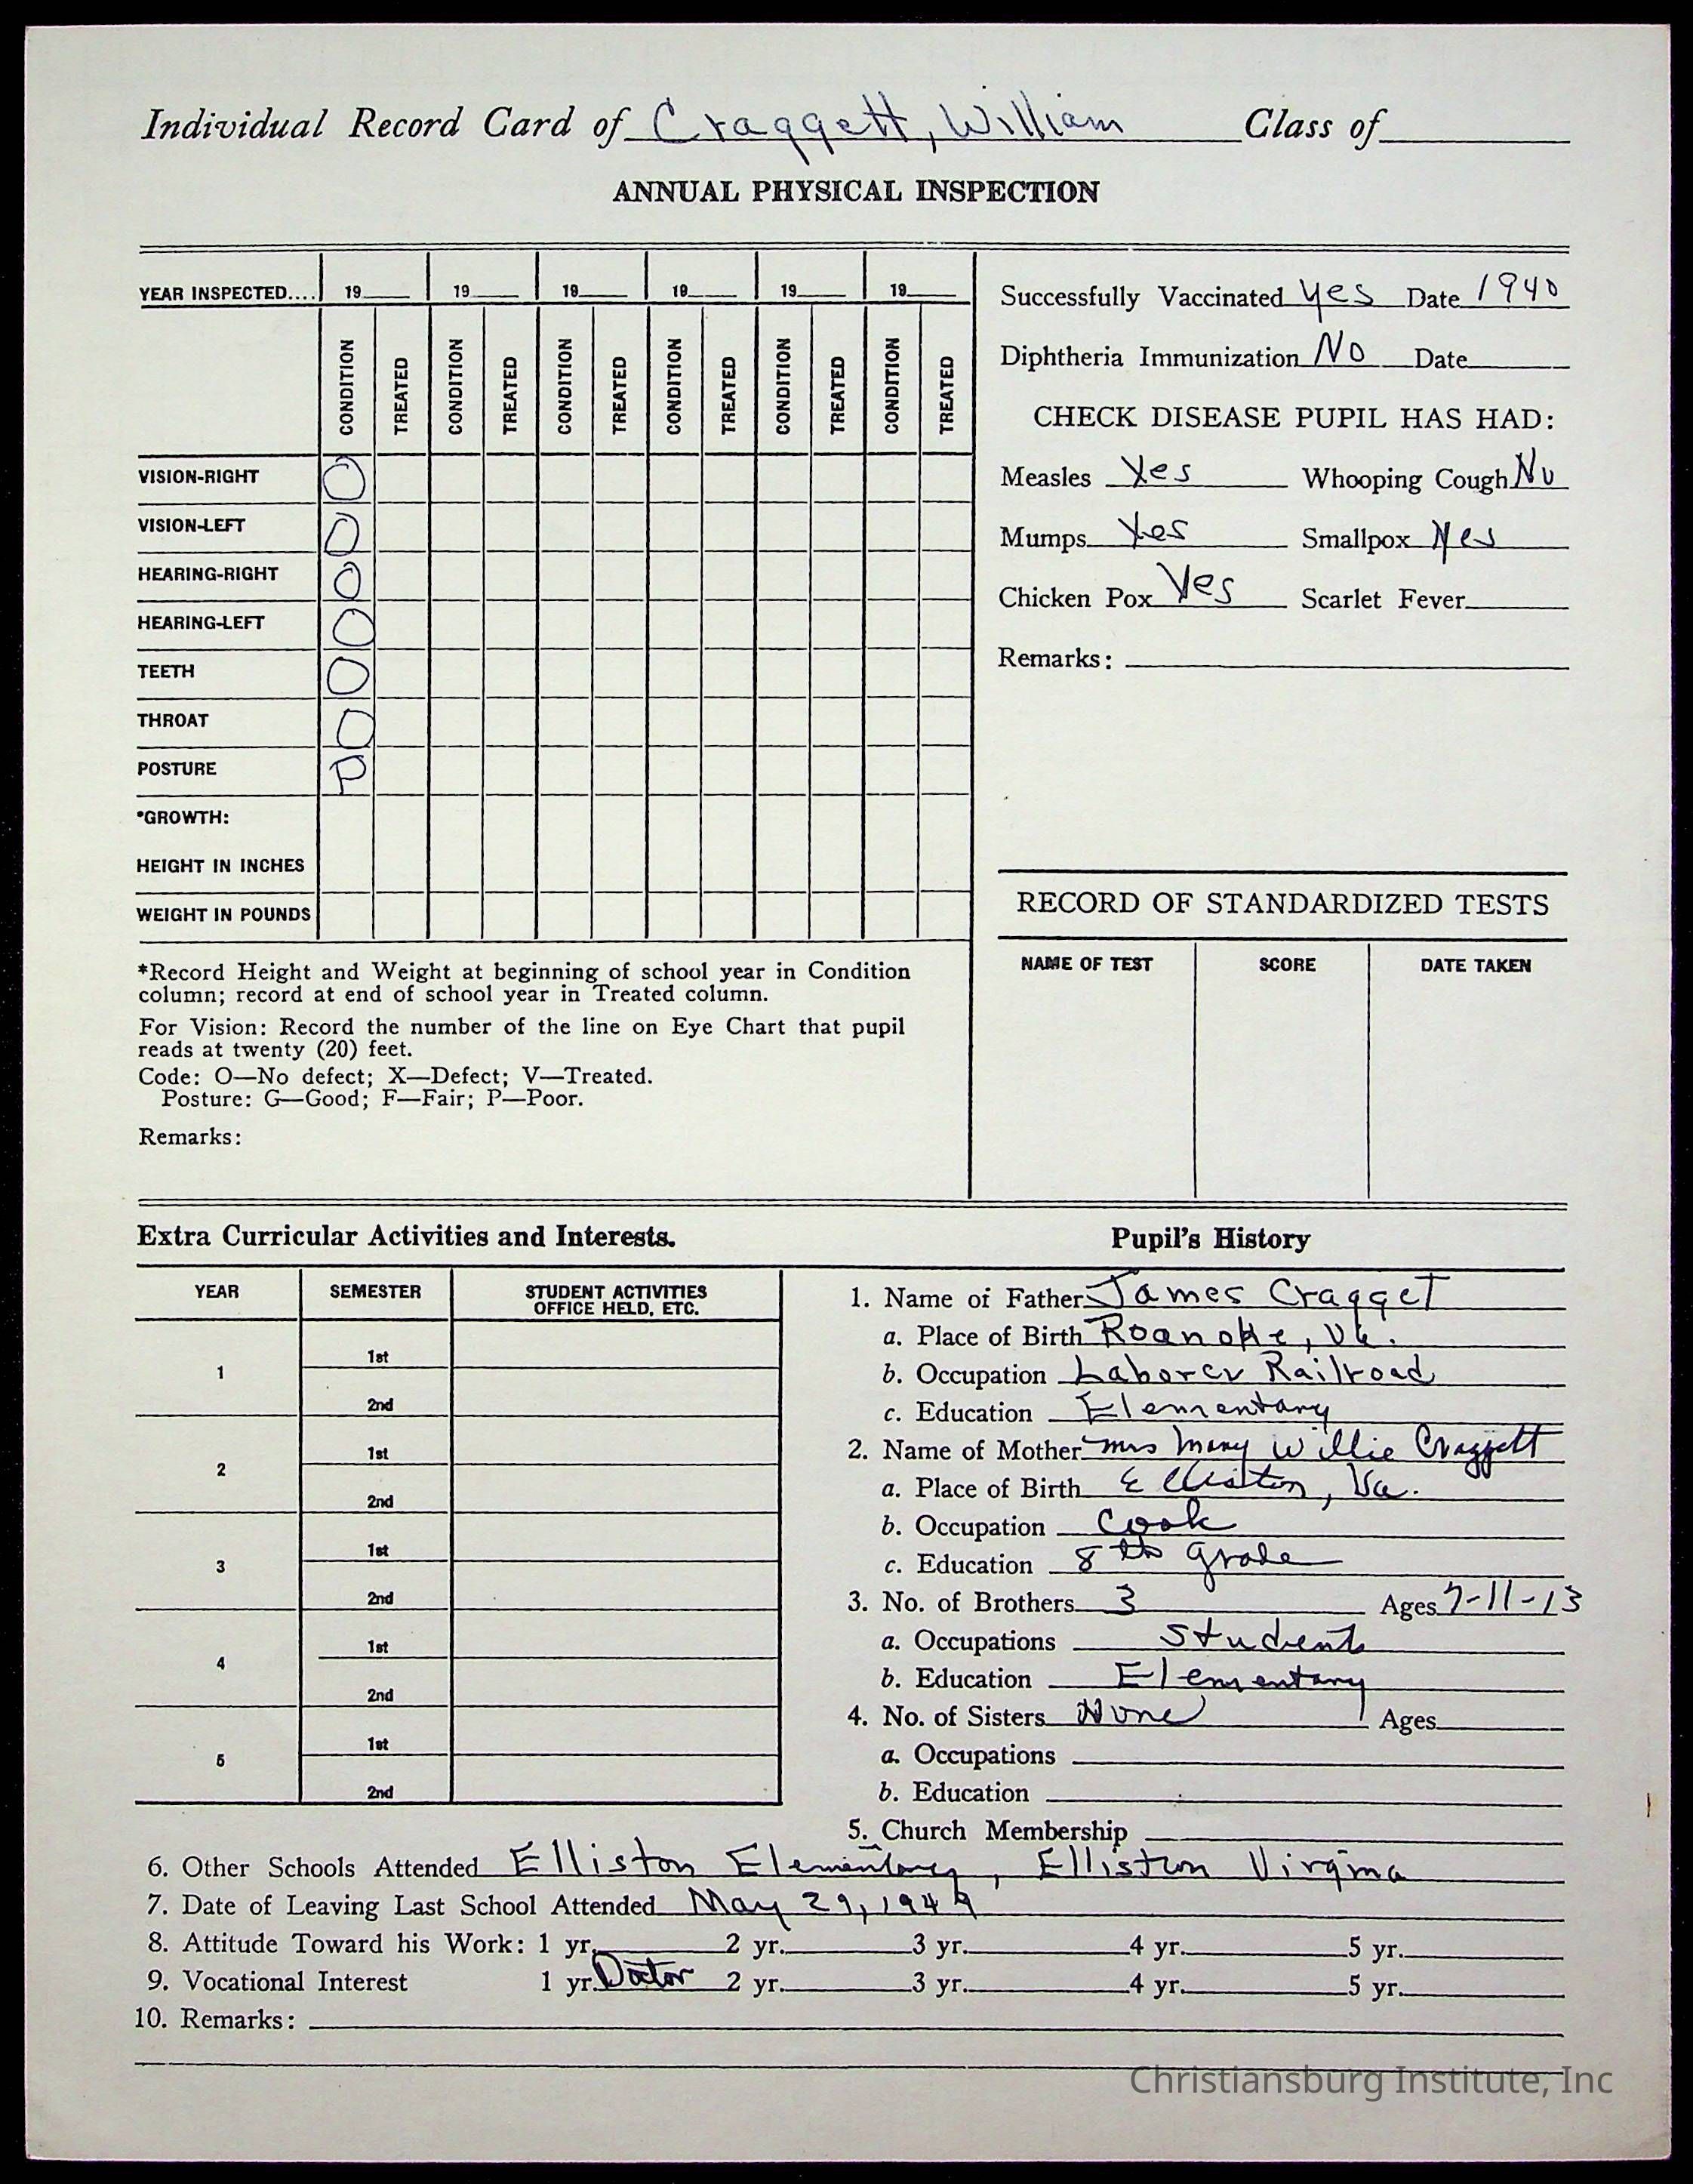 Individual Record Card of Craggett, William Class of
ANNUAL PHYSICAL INSPECTION
YEAR INSPECTED.... 19 19 19 19 19 19
CONDITION TREATED CONDITION TREATED CONDITION TREATED CONDITION TREATED CONDITION TREATED CONDITION TREATED
VISION-RIGHT O
VISION-LEFT O
HEARING-RIGHT O
HEARING-LEFT O
TEETH O
THROAT O
POSTURE P
*GROWTH:
HEIGHT IN INCHES
WEIGHT IN POUNDS
*Record Height and Weight at beginning of school year in Condition
column; record at end of school year in Treated column.
For Vision: Record the number of the line on Eye Chart that pupil
reads at twenty (20) feet.
Code: O—No defect; X—Defect; V—Treated.
Posture: G—Good; F—Fair; P—Poor.
Remarks:
Successfully Vaccinated Yes Date 1940
Diphtheria Immunization No Date
CHECK DISEASE PUPIL HAS HAD:
Measles Yes Whooping Cough No
Mumps Yes Smallpox Yes
Chicken Pox Yes Scarlet Fever
Remarks:
RECORD OF STANDARDIZED TESTS
NAME OF TEST SCORE DATE TAKEN
Extra Curricular Activities and Interests.
YEAR SEMESTER STUDENT ACTIVITIES
OFFICE HELD, ETC.
1 1st
2nd
2 1st
2nd
3 1st
2nd
4 1st
2nd
5 1st
2nd
Pupil's History
1. Name of Father James Cragget
a. Place of Birth Roanoke, Va.
b. Occupation Laborer Railroad
c. Education Elementary
2. Name of Mother Mrs Mary Willie Craggett
a. Place of Birth Elliston, Va.
b. Occupation Cook
c. Education 8th grade
3. No. of Brothers 3 Ages 7-11-13
a. Occupations Students
b. Education Elementary
4. No. of Sisters None Ages
a. Occupations
b. Education
5. Church Membership
6. Other Schools Attended Elliston Elementary, Elliston Virgina
7. Date of Leaving Last School Attended May 29, 1949
8. Attitude Toward his Work: 1 yr. 2 yr. 3 yr. 4 yr. 5 yr.
9. Vocational Interest 1 yr. Doctor 2 yr. 3 yr. 4 yr. 5 yr.
10. Remarks:
Christiansburg Institute, Inc